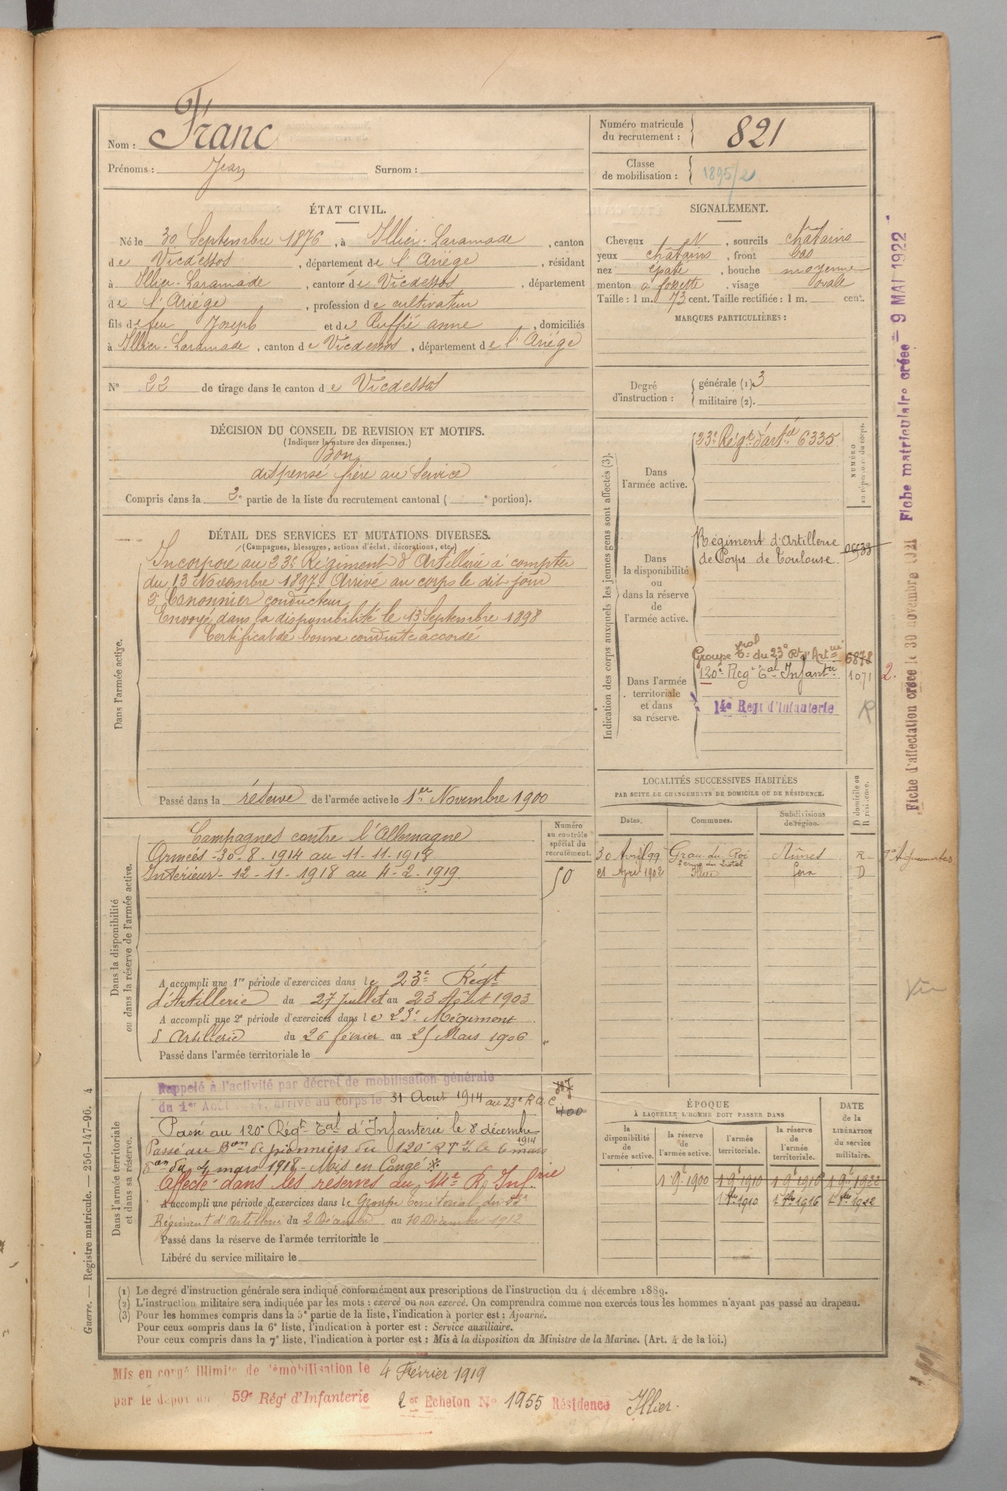 Nom : Franc
Prénoms : Jean Surnom :
Numéro matricule
du recrutement : 821
Classe
de mobilisation : 1895/2
ÉTAT CIVIL.
Né le 30 Septembre 1876, à Illier-Laramade, canton
de Vicdessos, département de l'Ariège, résidant
à Illier-Laramade, canton de Vicdessos, département
de l'Ariège, profession de cultivateur
fils de feu Joseph et de Ruffié anne, domiciliés
à Illier-Laramade, canton de Vicdessos, département de l'Ariège
SIGNALEMENT.
Cheveux et, sourcils châtains
yeux châtains, front bas
nez épaté, bouche moyenne
menton à fossette, visage ovale
Taille : 1 m. 73 cent. Taille rectifiée : 1 m. cent.
MARQUES PARTICULIÈRES :
N° 22 de tirage dans le canton de Vicdessos
Degré
d'instruction :
générale (1) 3
militaire (2).
DÉCISION DU CONSEIL DE REVISION ET MOTIFS.
(Indiquer la nature des dispenses.)
Bon
dispensé frère au Service
Compris dans la 2e partie de la liste du recrutement cantonal ( e portion).
DÉTAIL DES SERVICES ET MUTATIONS DIVERSES.
(Campagnes, blessures, actions d'éclat, décorations, etc.)
Dans l'armée active.
Incorporé au 23e Régiment d'Artillerie à compter
du 13 Novembre 1897. Arrivé au corps le dit jour
2e Canonnier conducteur
Envoyé dans la disponibilité le 13 Septembre 1898
Certificat de bonne conduite accordé
Passé dans la réserve de l'armée active le 1er Novembre 1900
Indication des corps auxquels les jeunes gens sont affectés (3).
Dans
l'armée active.
23e Régt d'artie 6335
NUMÉRO
au répertoire du corps.
Dans
la disponibilité
ou
dans la réserve
de
l'armée active.
Régiment d'Artillerie
de Corps de Toulouse
Dans l'armée
territoriale
et dans
sa réserve.
Groupe Trial du 23e Rt d'Artie 6878
120e Régt Tal Infantie 1071 2.
14e Régt d'Infanterie R
Fiche matriculaire créée 9 MAI 1922
Fiche d'affectation créée le 30 novembre 1921
LOCALITÉS SUCCESSIVES HABITÉES
PAR SUITE DE CHANGEMENTS DE DOMICILE OU DE RÉSIDENCE.
D domicile ou
R résidence.
Dates. Communes. Subdivisions
de région.
30 Avril 99 Grau-du-Roi Nîmes R
21 Avril 1902 Illier Foix D
Dans la disponibilité
ou dans la réserve de l'armée active.
Numéro
au contrôle
spécial du
recrutement.
50
Campagnes contre l'Allemagne
Armées - 30-8-1914 au 11-11-1918
Intérieur - 12-11-1918 au 4-2-1919
A accompli une 1re période d'exercices dans le 23e Régt
d'Artillerie du 27 juillet au 23 Août 1903
A accompli une 2e période d'exercices dans le 23e Régiment
d'Artillerie du 26 février au 25 Mars 1906
Passé dans l'armée territoriale le
Dans l'armée territoriale
et dans sa réserve.
Rappelé à l'activité par décret de mobilisation générale
du 1er Août 1914, arrivé au corps le 31 Août 1914 au 23e R.A.C
Passé au 120e Régt Tal d'Infanterie le 8 décembre 1914
Passé au Bon de pionniers du 120e R.T.I. le 6 mars
du 4 mars 1918 - Mis en Congé *
Affecté dans les réserves du 14e R. Infrie
A accompli une période d'exercices dans le Groupe territorial du 23e
Régiment d'Artillerie du 2 Décembre au 10 Décembre 1912
Passé dans la réserve de l'armée territoriale le
Libéré du service militaire le
ÉPOQUE
À LAQUELLE L'HOMME DOIT PASSER DANS
DATE
de la
LIBÉRATION
du service
militaire.
la
disponibilité
de l'armée active.
la réserve
de
l'armée active.
l'armée
territoriale.
la réserve
de
l'armée
territoriale.
1 9e 1900 1 9e 1910 1 9e 1916 1 9e 1922
1 8re 1910 1 8re 1916 1 8re 1922
(1) Le degré d'instruction générale sera indiqué conformément aux prescriptions de l'instruction du 4 décembre 1889.
(2) L'instruction militaire sera indiquée par les mots : exercé ou non exercé. On comprendra comme non exercés tous les hommes n'ayant pas passé au drapeau.
(3) Pour les hommes compris dans la 5e partie de la liste, l'indication à porter est : Ajourné.
Pour ceux compris dans la 6e liste, l'indication à porter est : Service auxiliaire.
Pour ceux compris dans la 7e liste, l'indication à porter est : Mis à la disposition du Ministre de la Marine. (Art. 4 de la loi.)
Guerre. — Registre matricule. — 256-147-96. 4
Mis en congé illimité de démobilisation le 4 Février 1919
par le dépôt du 59e Régt d'Infanterie 2er Echelon No 1955 Résidence Illier.